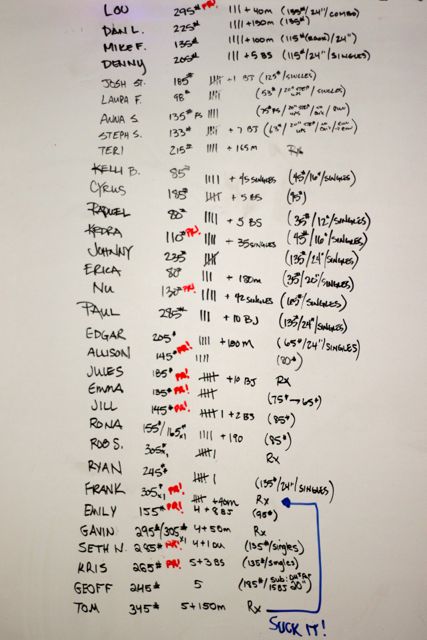 LOU 295# PR! III + 40m (185#/24"/COMBO)
DAN L. 225# IIII + 130m (135#)
MIKE F. 135# IIII + 100m (115#/24")
DENNY 205# IIII + 5 BS (115#/24"/SINGLES)
JOSH ST. 185# +1 BJ (125#/SINGLES)
LAURA F. 98# IIII (53#/20" /SINGLES)
ANNA S. 135# IIII
STEPH S. 133# IIII + 7 BJ
TERI 215# IIII + 165m Rx
KELLI B. 85# IIII + 45 SINGLES (45#/16"/SINGLES)
CYRUS 185# + 5 BS (95#)
RAQUEL 80# IIII + 5 BS (35#/12"/SINGLES)
KEDRA 110# PR! IIII + 35 SINGLES (45#/16"/SINGLES)
JOHNNY 235# (135#/24"/SINGLES)
ERICA 80# III + 180m (35#/20"/SINGLES)
NU 130# PR! IIII + 92 SINGLES (65#/SINGLES)
PAUL 285# III + 10 BJ (135#/24"/SINGLES)
EDGAR 205# III + 100m (65#/24"/SINGLES)
ALLISON 145# PR! IIII (80#)
JULES 185# PR! +10 BJ Rx
EMMA 135# PR! (75# → 65#)
JILL 145# PR! I + 2 BS (85#)
RONA 155/165x1 IIII + 190 (85#)
ROB S. 305x1 I Rx
RYAN 245# I
FRANK 305x1 PR! + 40m (135#/24"/SINGLES)
EMILY 155# PR! 4 + 8 BJ Rx
GAVIN 295#/305# 4 + 50m (95#)
SETH N. 285# PR! 4 + 10U Rx
KRIS 265# PR! 5 + 3 BS (135#/singles)
GEOFF 245# 5 (135#/singles)
TOM 345# 5 + 150m Rx
SUCK IT!